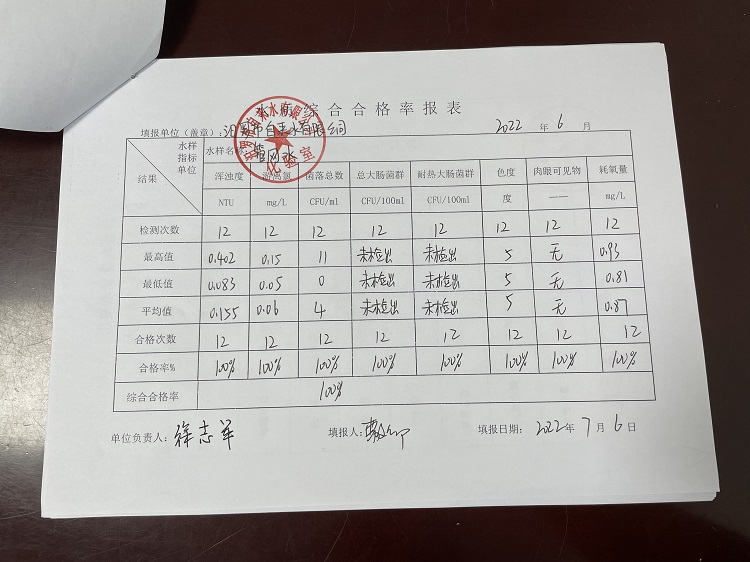 水质综合合格率报表
填报单位(盖章):汨罗市自来水有限公司 2022 年 6 月
水样 指标 单位 结果
水样名称:管网水
浑浊度 游离氯 菌落总数 总大肠菌群 耐热大肠菌群 色度 肉眼可见物 耗氧量
NTU mg/L CFU/ml CFU/100ml CFU/100ml 度 —— mg/L
检测次数 12 12 12 12 12 12 12 12
最高值 0.402 0.15 11 未检出 未检出 5 无 0.93
最低值 0.083 0.05 0 未检出 未检出 5 无 0.81
平均值 0.155 0.06 4 未检出 未检出 5 无 0.87
合格次数 12 12 12 12 12 12 12 12
合格率% 100% 100% 100% 100% 100% 100% 100% 100%
综合合格率 100%
单位负责人:徐志军 填报人: 填报日期: 2022 年 7 月 6 日
化验室